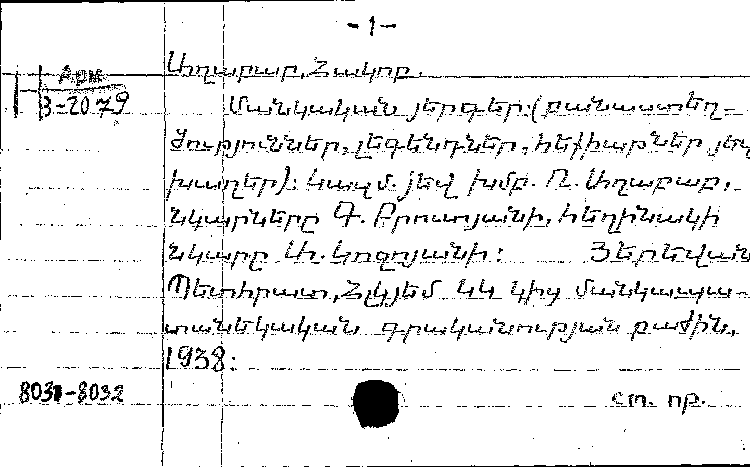 - 1 -
Арм.
3-2079
Աղաբաբ, Հակոբ.
Մանկական յերգեր: (բանաստեղ-
ծություններ, լեգենդներ, հեքիաթներ յեվ
խաղեր): Կազմ. յեվ խմբ. Ո. Աղաբաբ,
նկարները Գ. Բրուտյանի, հեղինակի
նկարը Ար. Կոջոյանի: Յերեվան
Պետհրատ, ՀԼԿՅԵՄ ԿԿ կից մանկապա-
տանեկական գրականության բաժին,
1938:
8031-8032
ст. пр.